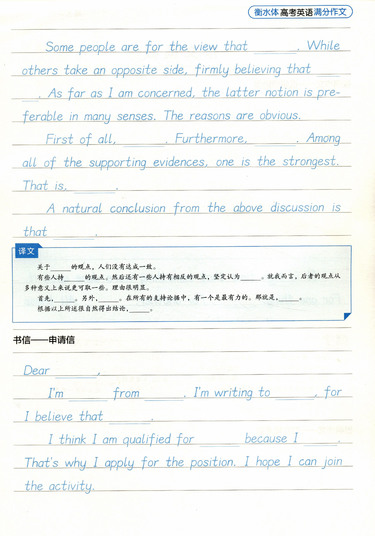 衡水体 高考英语 满分作文
Some people are for the view that ______. While
others take an opposite side, firmly believing that ____
__. As far as I am concerned, the latter notion is pre-
ferable in many senses. The reasons are obvious.
First of all, ______. Furthermore, ______. Among
all of the supporting evidences, one is the strongest.
That is, ______.
A natural conclusion from the above discussion is
that ______.
译文
关于______的观点，人们没有达成一致。
有些人持______的观点。然后还有一些人持有相反的观点，坚定认为______。就我而言，后者的观点从
多种意义上来说更可取一些。理由很明显。
首先，______。另外，______。在所有的支持论据中，有一个是最有力的。那就是，______。
根据以上所述很自然得出结论，______。
书信——申请信
Dear ______,
I'm ______ from ______. I'm writing to ______, for
I believe that ______.
I think I am qualified for ______ because I ______.
That's why I apply for the position. I hope I can join
the activity.